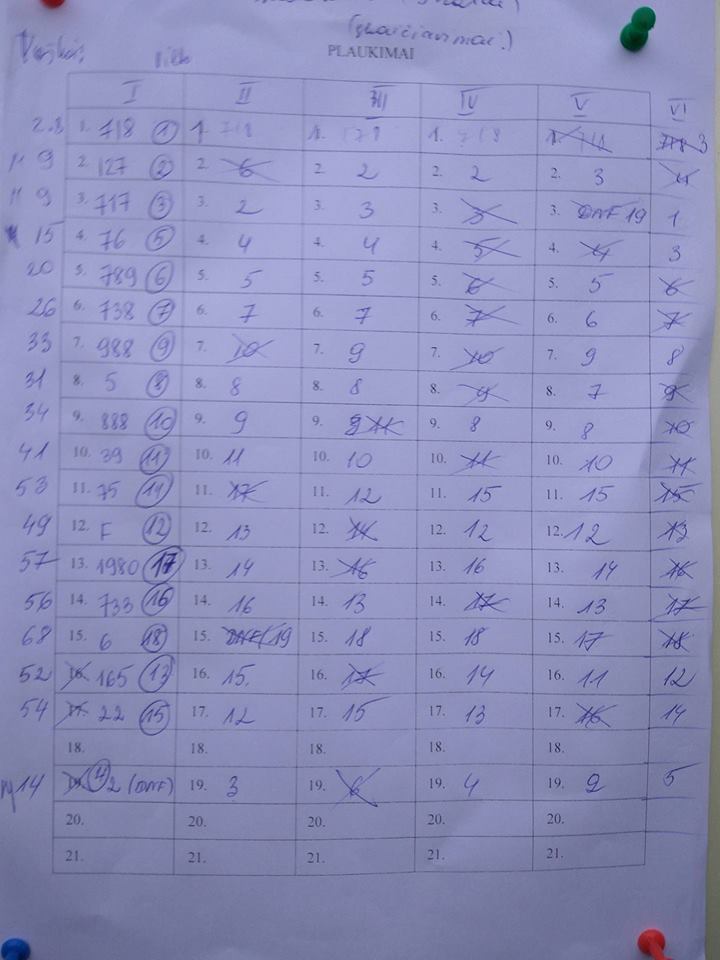 PLAUKIMAI
I II III IV V VI
2.8 1. 718 1 1. 718 1. 1. 718 1. 3
9 2. 127 2 2. 6 2. 2 2. 2 2. 3 4
9 3. 717 3 3. 2 3. 3 3. 3. DNF 19 1
15 4. 76 5 4. 4 4. 4 4. 5 4. 4 3
20 5. 789 6 5. 5 5. 5 5. 6 5. 5 6
26 6. 738 7 6. 7 6. 7 6. 7 6. 6 7
33 7. 988 9 7. 10 7. 9 7. 10 7. 9 8
31 8. 5 8 8. 8 8. 8 8. 9 8. 7 9
34 9. 888 10 9. 9 9. 11 9. 8 9. 8 10
41 10. 39 11 10. 11 10. 10 10. 11 10. 10 11
53 11. 75 11 11. 17 11. 12 11. 15 11. 15 15
49 12. F 12 12. 13 12. 14 12. 12 12. 12 13
57 13. 1980 17 13. 14 13. 16 13. 16 13. 14 16
56 14. 733 16 14. 16 14. 13 14. 17 14. 13 17
68 15. 6 18 15. DNF 19 15. 18 15. 18 15. 17 18
52 16. 165 13 16. 15. 16. 17 16. 14 16. 11 12
54 17. 22 15 17. 12 17. 15 17. 13 17. 16 14
18. 18. 18. 18. 18.
14 19. 4 2 (DNF) 19. 3 19. 6 19. 4 19. 2 5
20. 20. 20. 20. 20.
21. 21. 21. 21. 21.